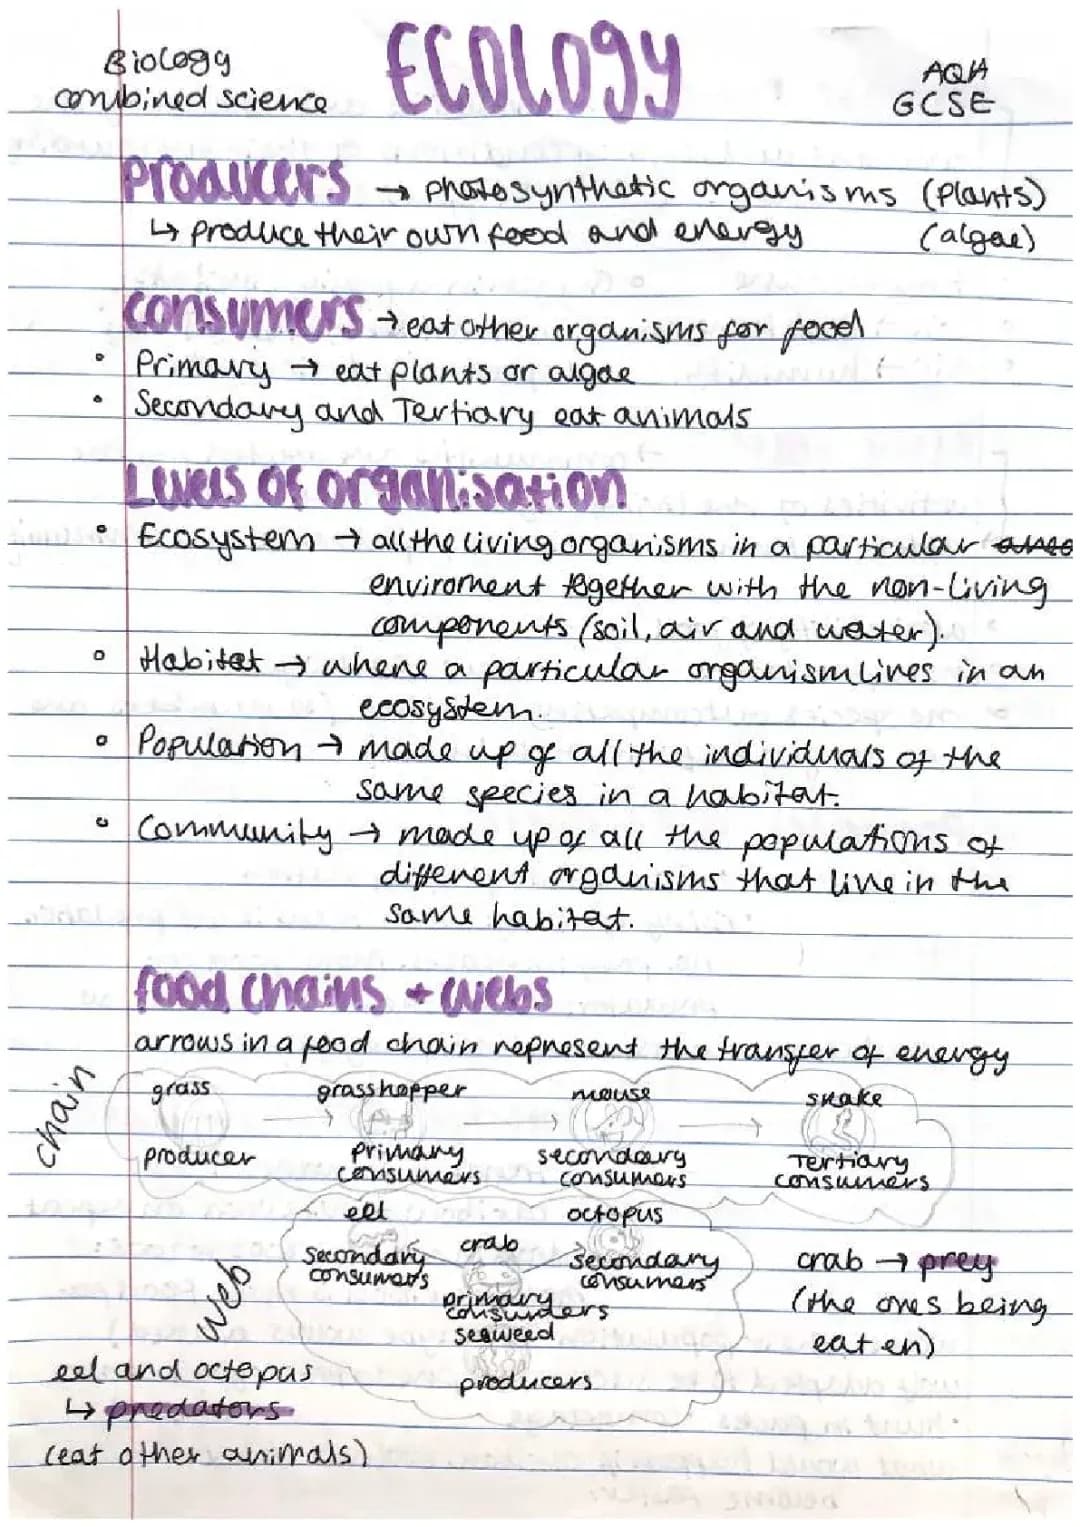 Biology
combined science
ECOLOGY
AQA
GCSE
Producers → photosynthetic organisms (Plants)
↳ produce their own food and energy (algae)
Consumers → eat other organisms for food
• Primary → eat plants or algae
• Secondary and Tertiary eat animals
Levels of organisation
• Ecosystem → all the living organisms in a particular
enviroment together with the non-living
components (soil, air and water).
• Habitat → where a particular organism lives in an
ecosystem.
• Population → made up of all the individuals of the
same species in a habitat.
• Community → made up of all the populations of
different organisms that live in the
same habitat.
food chains + webs
arrows in a food chain represent the transfer of energy
chain
grass grasshopper mouse snake
producer primary consumers secondary consumers Tertiary consumers
web
eel octopus
crab
secondary consumers secondary consumers
primary consumers
seaweed
producers
crab → prey
(the ones being
eaten)
eel and octopus
↳ predators
(eat other animals)